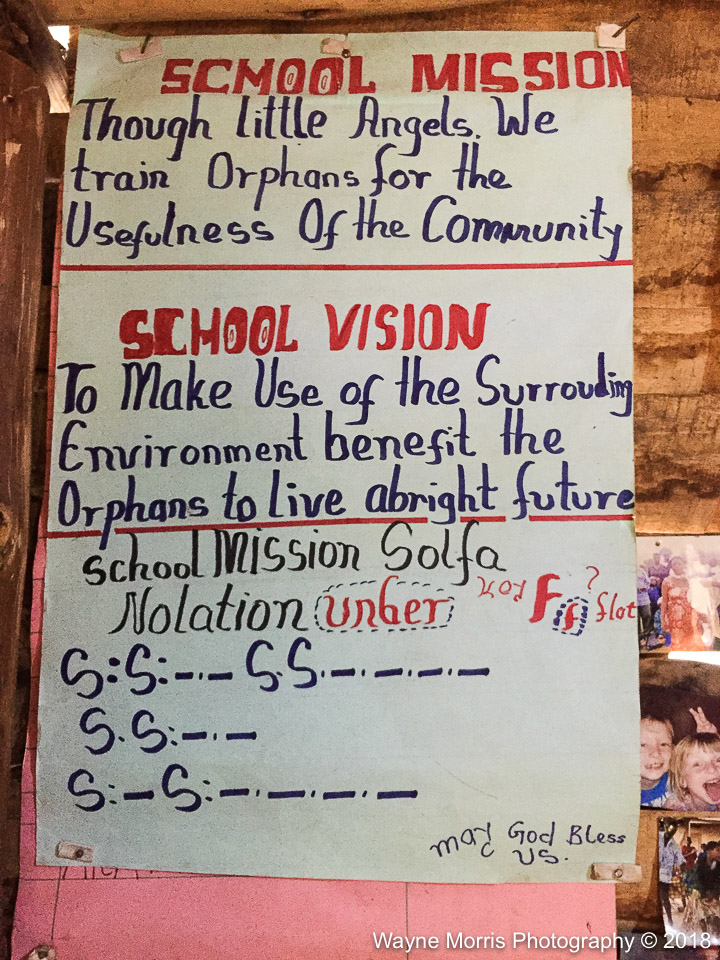 SCHOOL MISSION
Though little Angels. We
train Orphans for the
Usefulness Of the Community
SCHOOL VISION
To Make Use of the Surrouding
Environment benefit the
Orphans to live abright future
school Mission Solfa
Nolation unber key F f ? flot
S:S:-.- S.S.-.-.-.-
S.S:-.-
S:-S:-.-.-.-
may God Bless
us.
Wayne Morris Photography © 2018